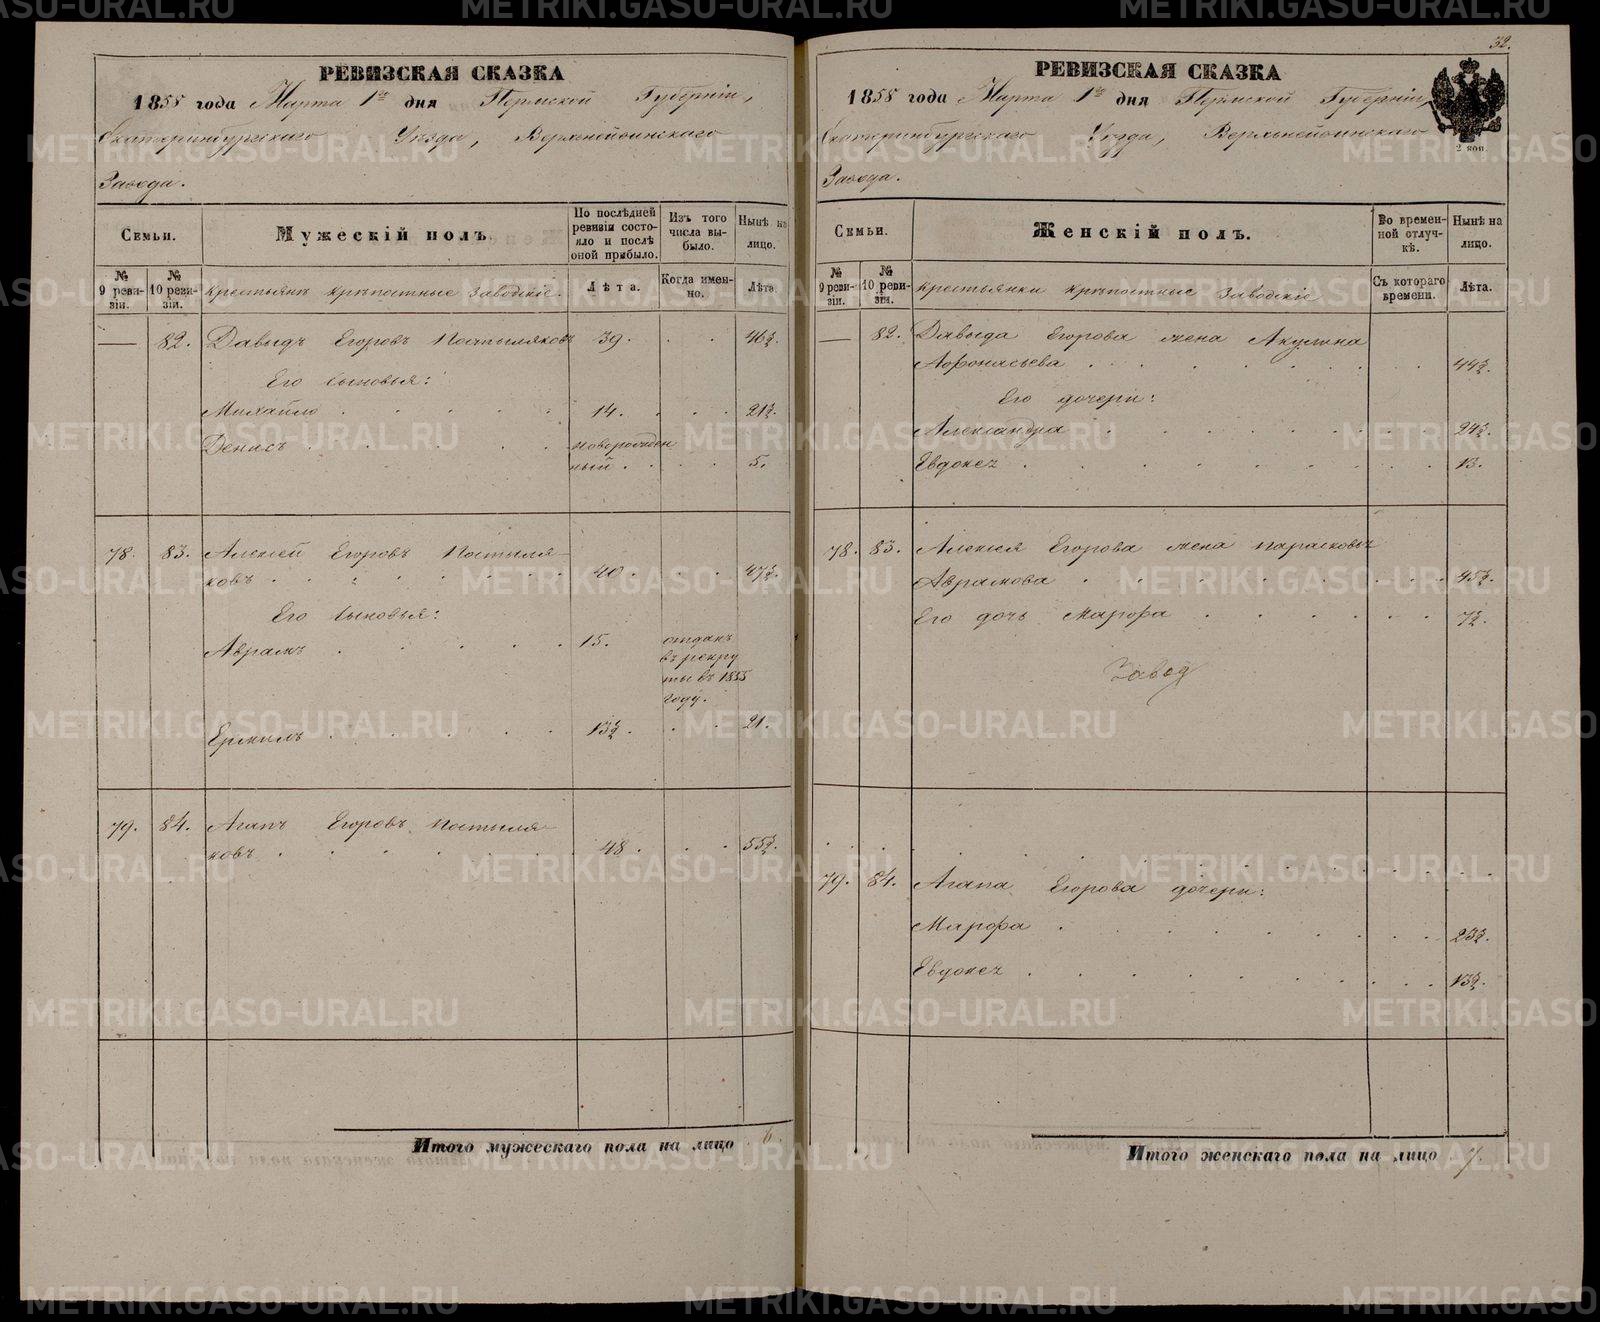 32.
РЕВИЗСКАЯ СКАЗКА
1858 года Марта 1го дня Пермской Губерніи,
Екатеринбургскаго Уѣзда, Верхнейвинскаго
Завода.
Семьи.
Мужескій полъ.
По послѣдней ревизіи состояло и послѣ оной прибыло.
Изъ того числа выбыло.
Нынѣ на лицо.
№ 9 ревизіи.
№ 10 ревизіи.
Крестьянъ крѣпостные заводскіе.
Лѣта.
Когда именно.
Лѣта.
— 82. Давыдъ Егоровъ Костыляковъ 39. 46½.
Его сыновья:
Михайло 14. 21½.
Денисъ новорожден
ный 5.
78. 83. Алексей Егоровъ Костыля
ковъ 40. 47½.
Его сыновья:
Аврамъ 15. отданъ
въ рекру
ты въ 1855
году.
Ермилъ 13½. 21.
79. 84. Агапъ Егоровъ Костыля
ковъ 48. 55½.
Итого мужескаго пола на лицо 6.
РЕВИЗСКАЯ СКАЗКА
1858 года Марта 1го дня Пермской Губерніи,
Екатеринбургскаго Уѣзда, Верхнейвинскаго
Завода.
2 коп.
Семьи.
Женскій полъ.
Во временной отлучкѣ.
Нынѣ на лицо.
№ 9 ревизіи.
№ 10 ревизіи.
Крестьянки крѣпостные заводскіе
Съ котораго времени.
Лѣта.
— 82. Давыда Егорова жена Акулина
Афонасьева 44½.
Его дочери:
Александра 24½.
Евдокея 13.
78. 83. Алексея Егорова жена Парасковья
Аврамова 45½.
Его дочь Марфа 7½.
Завод
79. 84. Агапа Егорова дочери:
Марфа 23½.
Евдокея 13½.
Итого женскаго пола на лицо 7.
METRIKI.GASO-URAL.RU